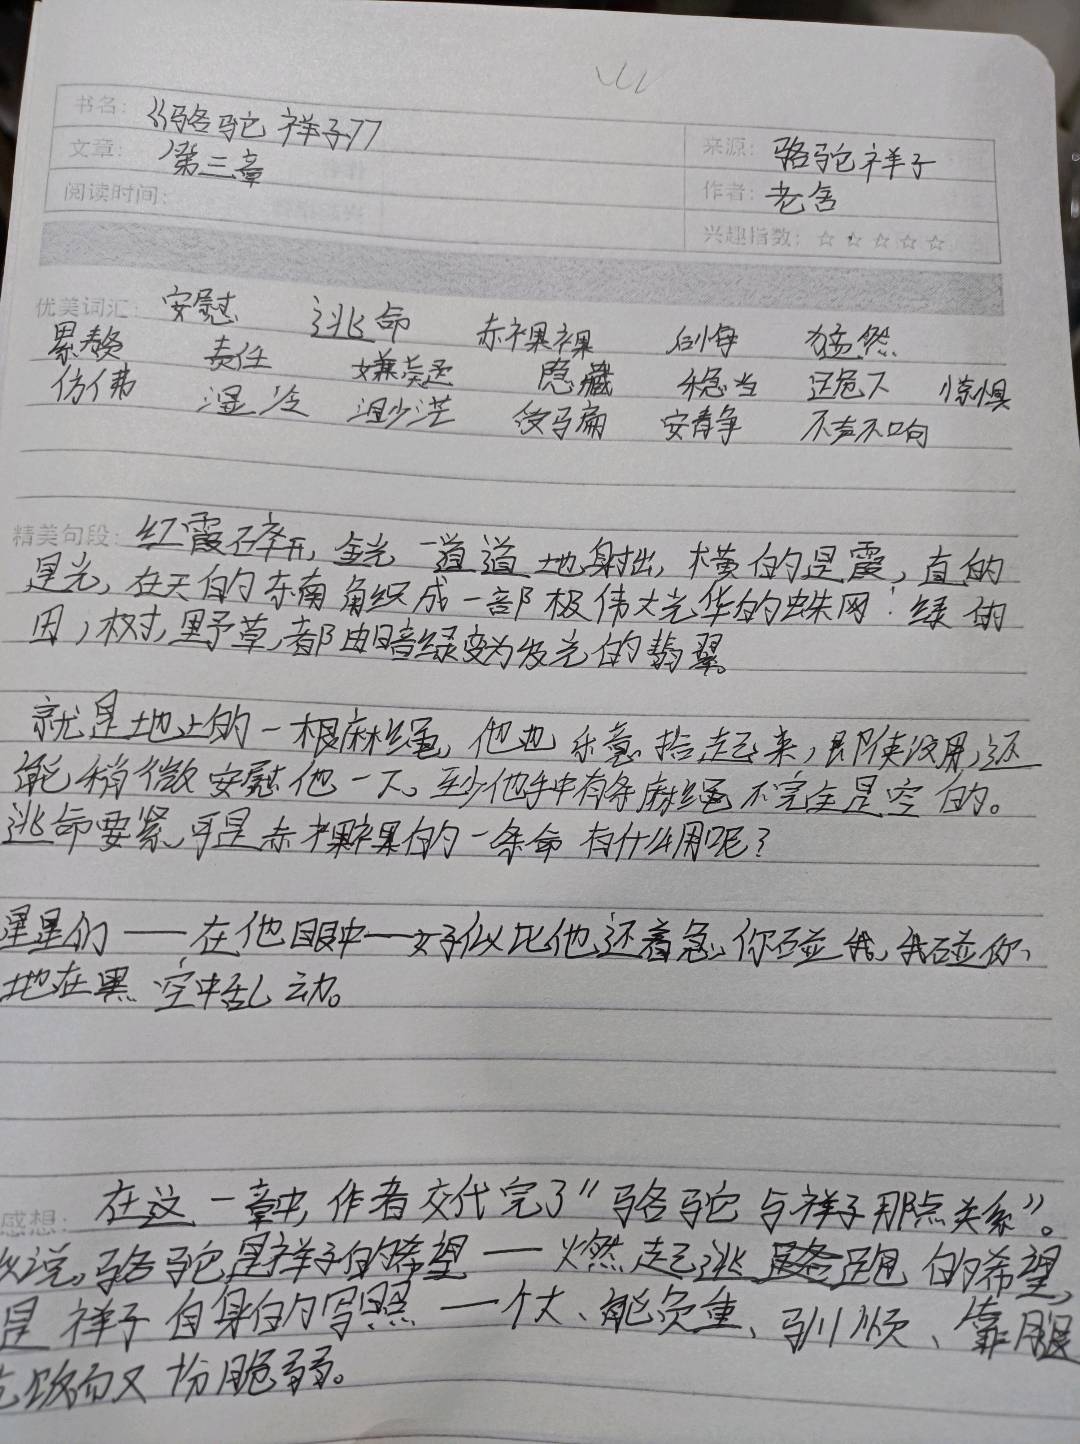 书名：《骆驼祥子》
来源：骆驼祥子
文章：第三章
作者：老舍
阅读时间：
兴趣指数：☆☆☆☆☆
优美词汇：安慰 逃命 赤裸裸 猛然
累赘 责任 嫌疑 隐藏 稳当 惊惧
仿佛 湿冷 渺茫 安静 不声不响
精美句段：红霞碎开，金光一道道地射出，横的是霞，直的
是光，在天的东南角织成一部极伟大光华的蛛网：绿的
田，树，野草，都由暗绿变为发光的翡翠。
就是地上的一根麻绳，他也乐意拾起来，即使没用，还
能稍微安慰他一下。至少他手中有条麻绳，不完全是空的。
逃命要紧，可是赤裸裸的一条命有什么用呢？
星星们——在他眼中——好似比他还着急，你碰我，我碰你，
地在黑空中乱动。
感想：在这一章中，作者交代完了“骆驼与祥子那点关系”。
以说，骆驼是祥子的希望——燃起逃跑的希望，
是祥子自身的写照——个大、能负重、驯顺、靠腿
路而又脆弱。